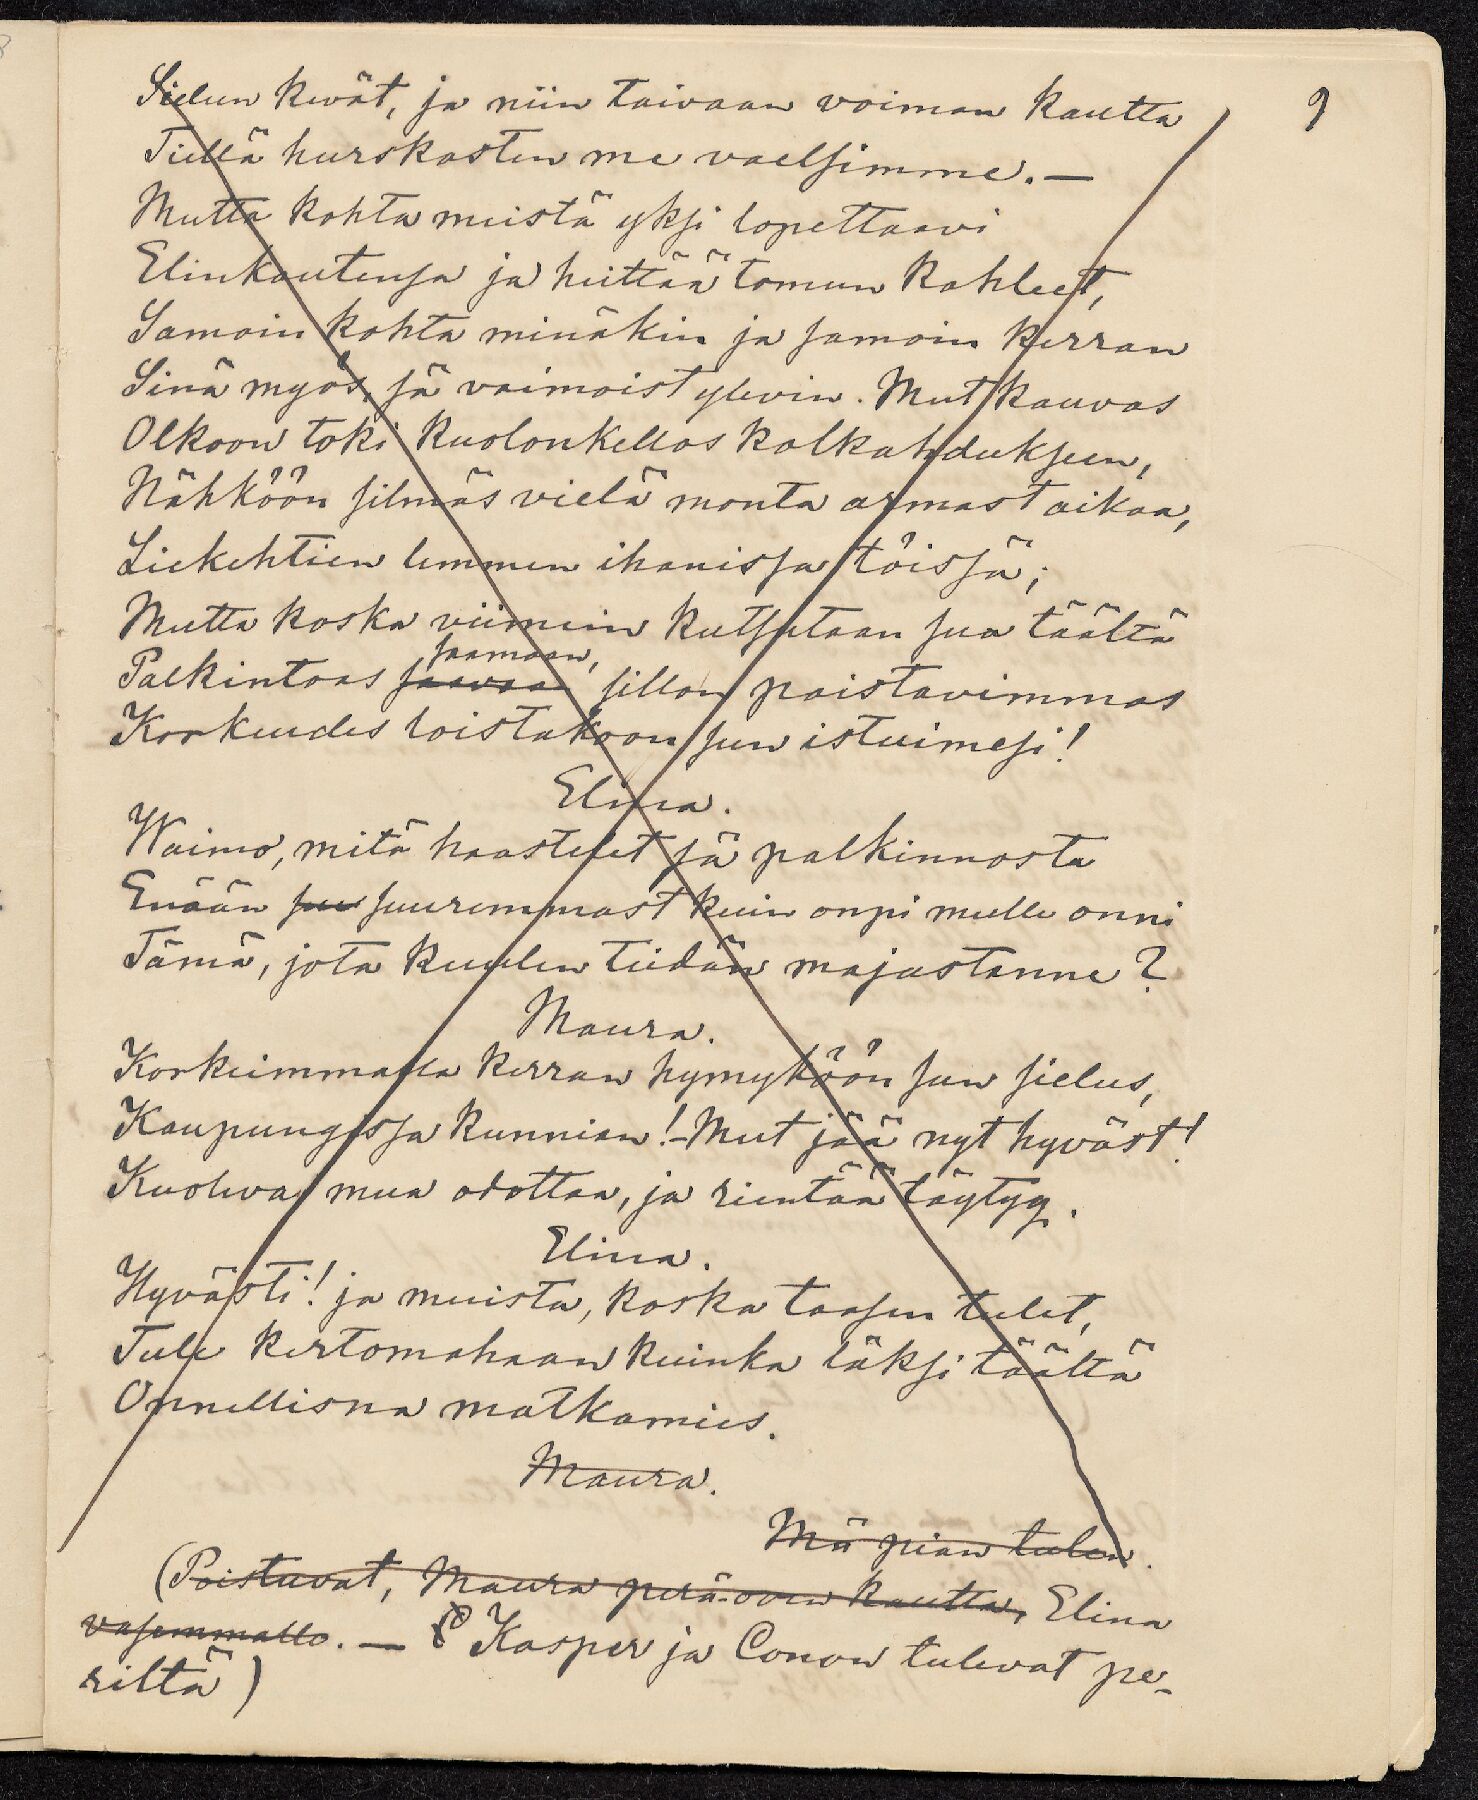 9
Sielun kevät, ja niin taivaan voiman kautta
Tiellä hurskasten me vaelsimme. —
Mutta kohta meistä yksi lopettaavi
Elinkautensa ja heittää tomun kahleet,
Samoin kohta minäkin ja samoin kerran
Sinä myös, sä vaimoist ylevin. Mut kauvas
Olkoon toki kuolonkellos kalkahdukseen,
Nähköön silmäs vielä monta armast aikaa,
Liekehtien lemmen ihanissa töissä;
Mutta koska viimein kutsutaan sua täältä
saamaan,
Palkintoas saavaan sillon paistavimmas
Korkeudes loistakoon sun istuimesi!
Elina.
Waimo, mitä haastelet sä palkinnosta
Enään suu suuremmast kuin onpi mulle onni
Tämä, jota kuulen teidän majastanne?
Maura.
Korkeimmassa kerran hymyköön sun sielus,
Kaupungissa kunnian! – Mut jää nyt hyväst!
Kuoleva mua odottaa, ja rientää täytyy.
Elina.
Hyvästi! ja muista, koska taasen tulet,
Tule kertomahaan kuinka läksi täältä
Onnellisna matkamies.
Maura.
Mä pian tulen.
(Poistuvat, Maura perä-oven kautta, Elina
vasemmalle. — Kasper ja Conon tulevat pe-
riltä)